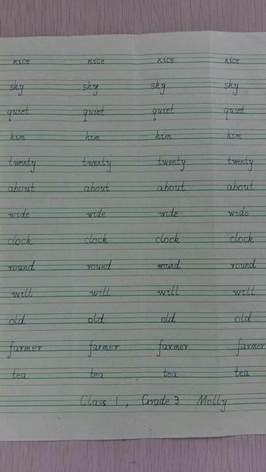 nice nice nice nice
sky sky sky sky
quiet quiet quiet quiet
him him him him
twenty twenty twenty twenty
about about about about
wide wide wide wide
clock clock clock clock
round round round round
will will will will
old old old old
farmer farmer farmer farmer
tea tea tea tea
Class 1, Grade 3 Molly